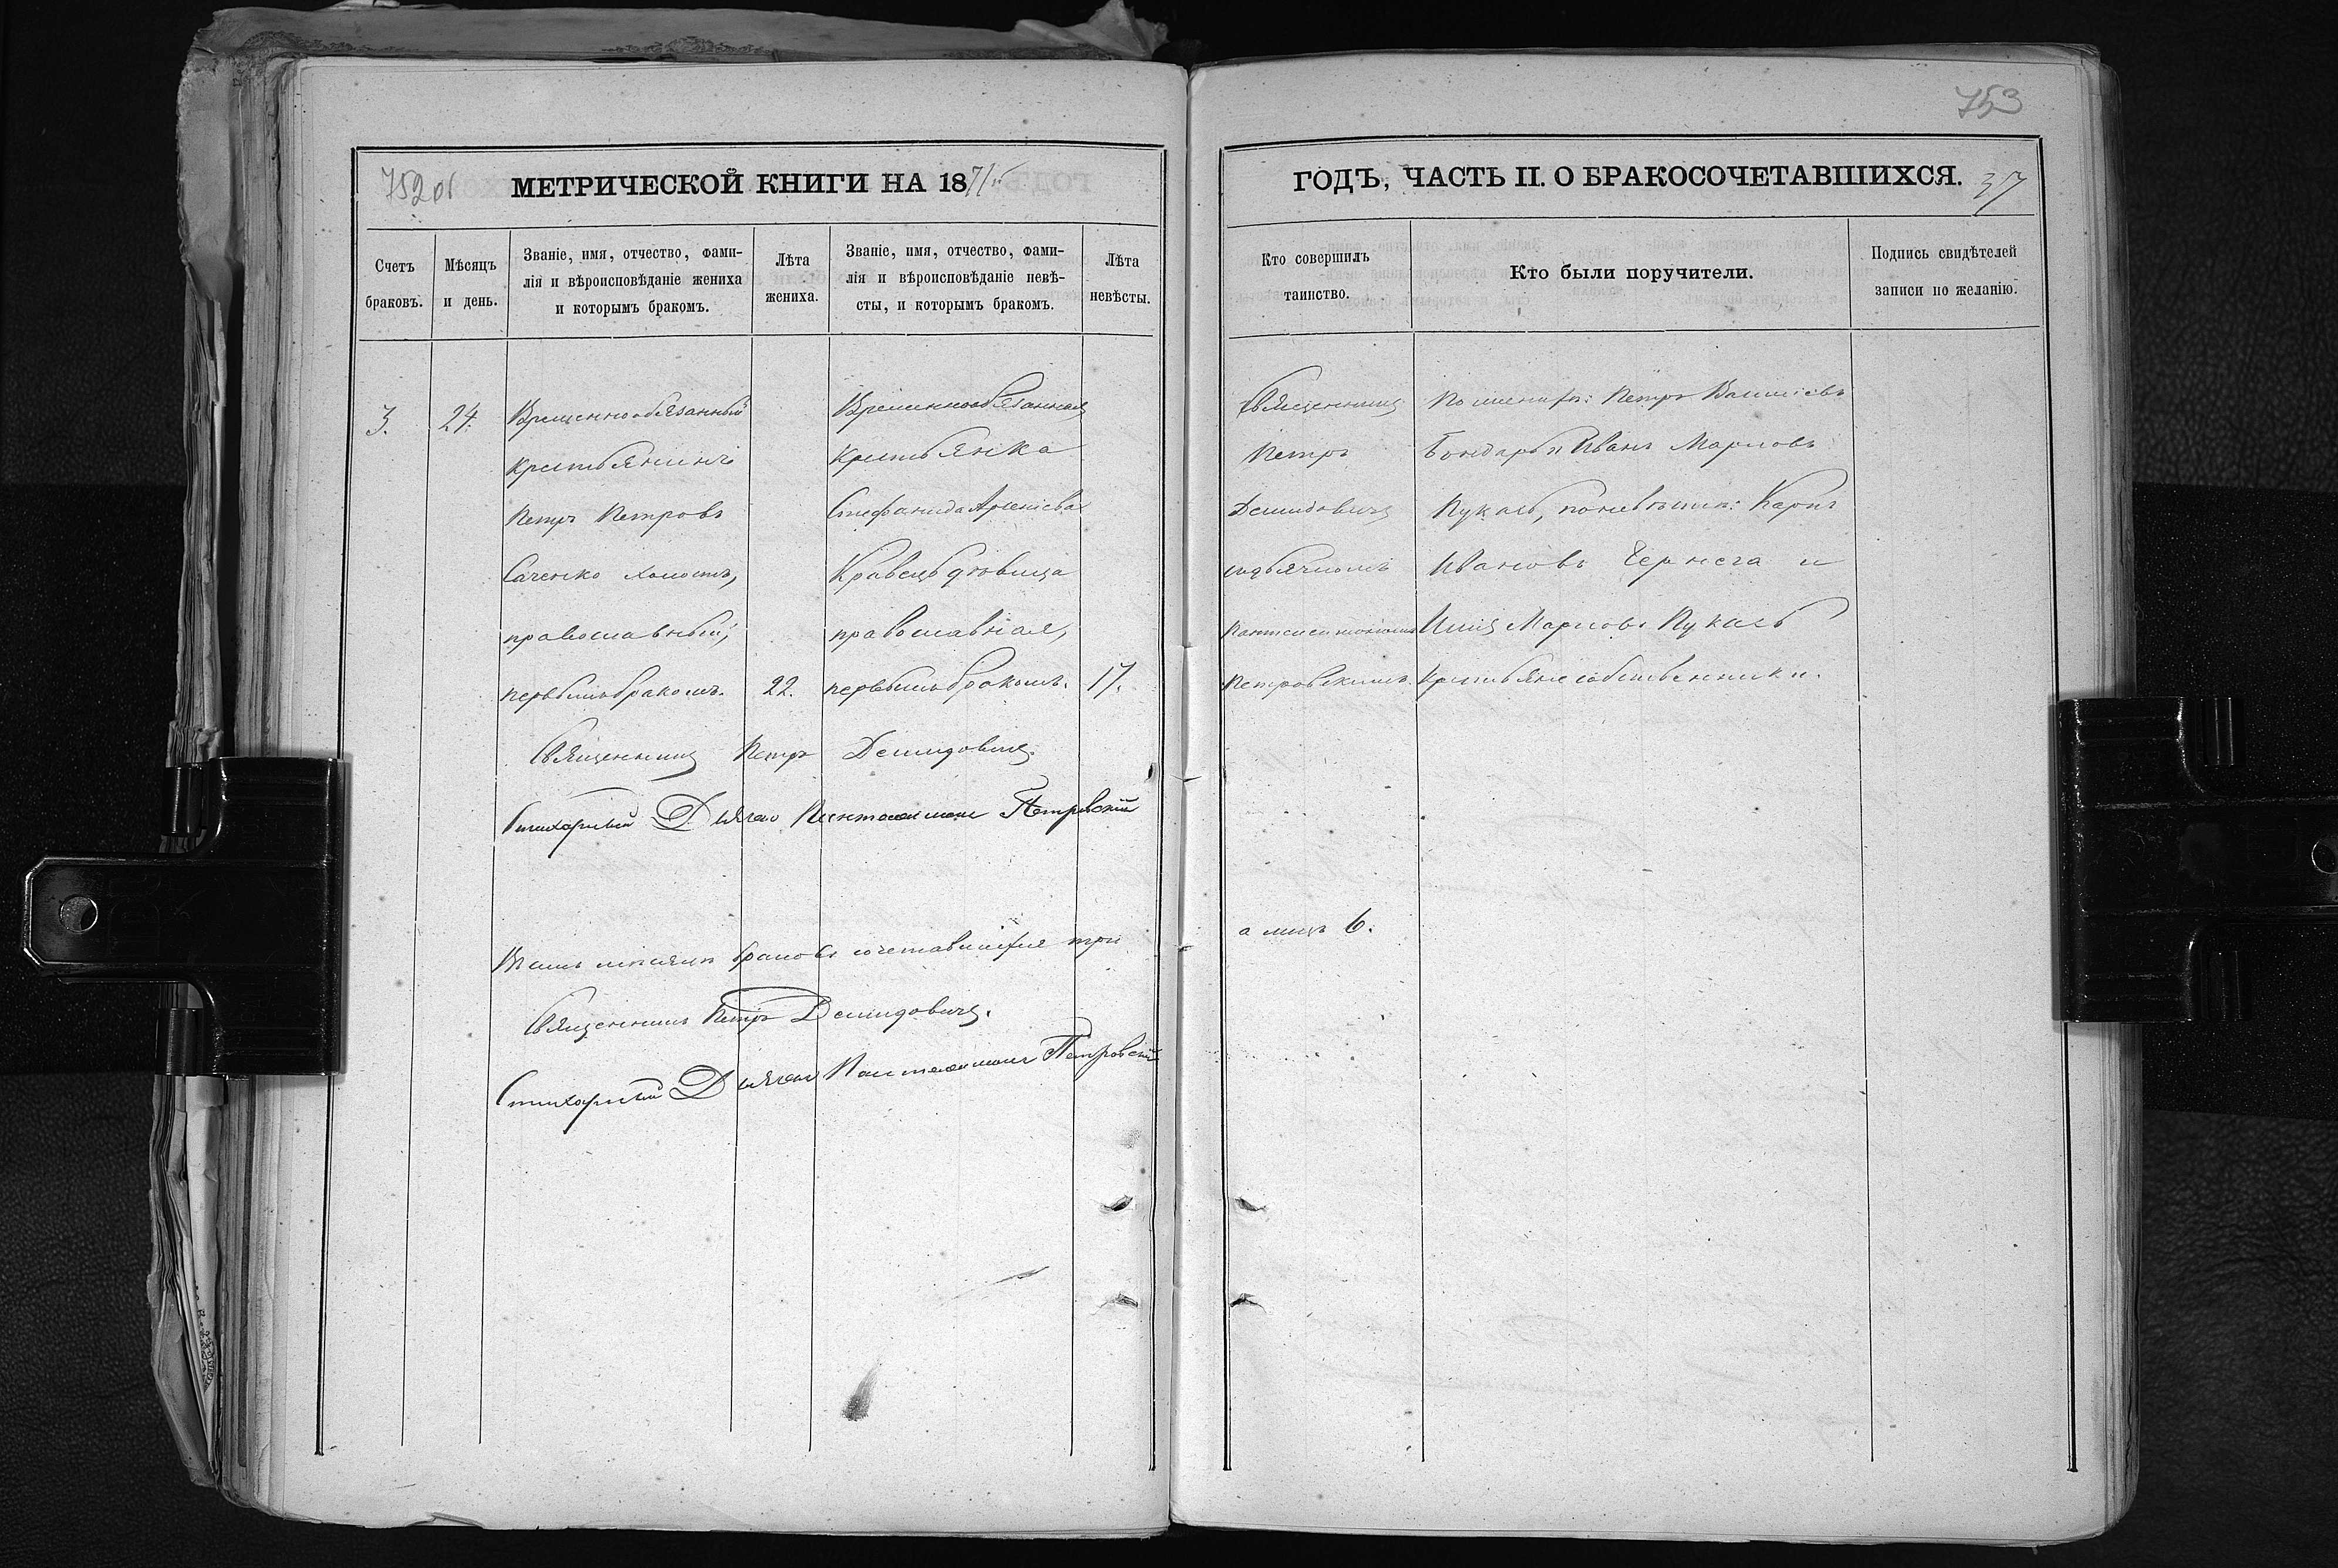 753
752 об
МЕТРИЧЕСКОЙ КНИГИ НА 1871й
ГОДЪ, ЧАСТЬ II. О БРАКОСОЧЕТАВШИХСЯ.
37
Счетъ
браковъ.
Мѣсяцъ
и день.
Званіе, имя, отчество, фами-
лія и вѣроисповѣданіе жениха
и которымъ бракомъ.
Лѣта
жениха.
Званіе, имя, отчество, фами-
лія и вѣроисповѣданіе невѣ-
сты, и которымъ бракомъ.
Лѣта
невѣсты.
Кто совершилъ
таинство.
Кто были поручители.
Подпись свидѣтелей
записи по желанію.
3.
24.
Временнообязанный
крестьянинъ
Петръ Петровъ
Саченко холостъ,
православный,
первымъ бракомъ.
22.
Временнообязанная
крестьянка
Стефанида Арсеніева
Кравецъ дѣвица
православная,
первымъ бракомъ.
17.
Священникъ
Петръ
Демидовичъ
съ дьячкомъ
Пантелеимономъ
Петровскимъ.
По женихѣ: Петръ
Бондарь и Иванъ Марковъ
Пукасъ, по невѣстѣ: Карпъ
Ивановъ Чернега и
Марковъ Пукасъ
крестьяне собственники.
Священникъ Петръ Демидовичъ.
Стихарный Дьячекъ Пантелеимонъ Петровскій
Въ семъ мѣсяцѣ браковъ сочетавшихся три
а лицъ 6.
Священникъ Петръ Демидовичъ.
Стихарный Дьячекъ Пантелеимонъ Петровскій